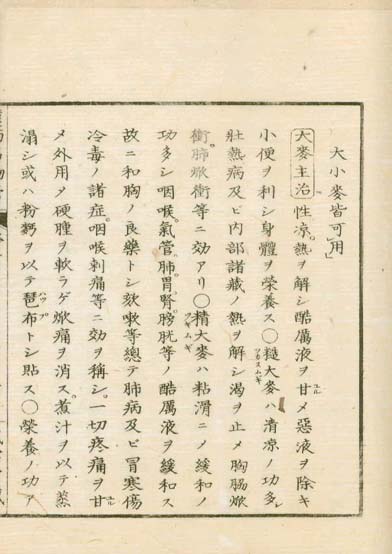 大小麥皆可用
大麥主治 性凉。熱ヲ解シ酷厲液ヲ甘メ惡液ヲ除キ
小便ヲ利シ身體ヲ榮養ス〇糙大麥ハ清凉ノ功多シ
壯熱病及ヒ内部諸藏ノ熱ヲ解シ渇ヲ止メ胸膓焮
衝。肺焮衝等ニ効アリ〇精大麥ハ粘滑ニメ緩和ノ
功多シ咽喉。氣管。肺。胃。腎。膀胱等ノ酷厲液ヲ緩和ス
故ニ和胸ノ良藥トシ欬嗽等總テ肺病及ヒ冒寒傷
冷毒ノ諸症。咽喉刺痛等ニ効ヲ稱シ。一切疼痛ヲ甘
メ外用メ硬腫ヲ軟ラゲ焮痛ヲ消ス。煮汁ヲ以テ蒸
溻シ或ハ粉麪ヲ以テ琶布トシ貼ス〇榮養ノ功ア